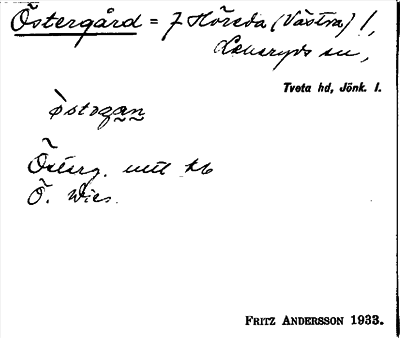 Östergård = 7 Höreda (Västra) /,
Lekeryds sn,
Tveta hd, Jönk. l.
östərgan
Österg. utt kb
Ö. Wies.
FRITZ ANDERSSON 1933.